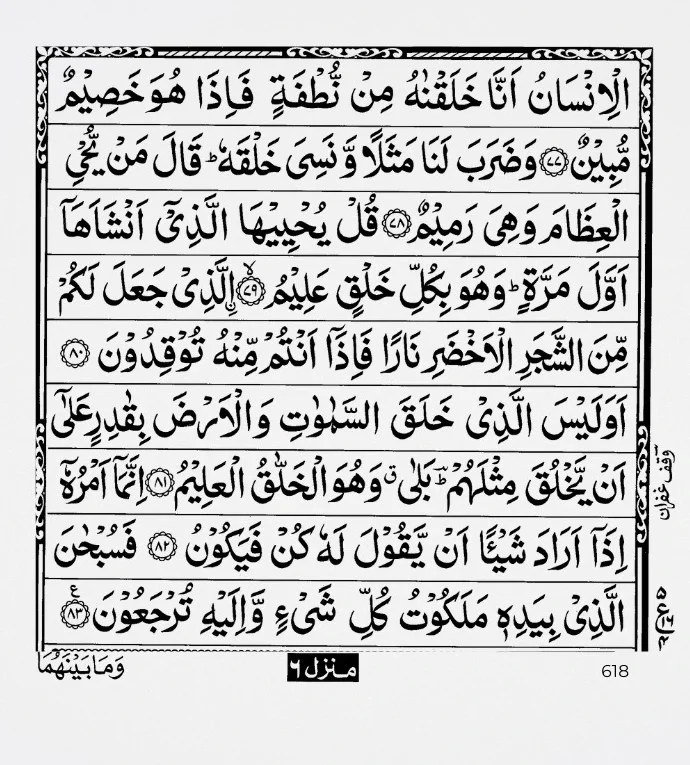 الۡاِنۡسَانُ اَنَّا خَلَقۡنٰهُ مِنۡ نُّطۡفَةٍ فَاِذَا هُوَ خَصِيۡمٌ
مُّبِيۡنٌ ﴿۷۷﴾ وَضَرَبَ لَنَا مَثَلًا وَّنَسِىَ خَلۡقَهٗ ؕ قَالَ مَنۡ يُّحۡىِ
الۡعِظَامَ وَهِىَ رَمِيۡمٌ ﴿۷۸﴾ قُلۡ يُحۡيِيۡهَا الَّذِىۡۤ اَنۡشَاَهَاۤ
اَوَّلَ مَرَّةٍ ؕ وَهُوَ بِكُلِّ خَلۡقٍ عَلِيۡمُ ۙ ﴿۷۹﴾ اۨلَّذِىۡ جَعَلَ لَكُمۡ
مِّنَ الشَّجَرِ الۡاَخۡضَرِ نَارًا فَاِذَاۤ اَنۡتُمۡ مِّنۡهُ تُوۡقِدُوۡنَ ﴿۸۰﴾
اَوَلَيۡسَ الَّذِىۡ خَلَقَ السَّمٰوٰتِ وَالۡاَرۡضَ بِقٰدِرٍ عَلٰٓى
اَنۡ يَّخۡلُقَ مِثۡلَهُمۡ ؕ بَلٰى ۗ وَهُوَ الۡخَلّٰقُ الۡعَلِيۡمُ ﴿۸۱﴾ اِنَّمَاۤ اَمۡرُهٗۤ
اِذَاۤ اَرَادَ شَيۡئًا اَنۡ يَّقُوۡلَ لَهٗ كُنۡ فَيَكُوۡنُ ﴿۸۲﴾ فَسُبۡحٰنَ
الَّذِىۡ بِيَدِهٖ مَلَكُوۡتُ كُلِّ شَىۡءٍ وَّاِلَيۡهِ تُرۡجَعُوۡنَ ﴿۸۳﴾ ع
وقف غفران
۵
ع
۱۶
618
منزل ۶
وَمَا بَيۡنَهُمَا